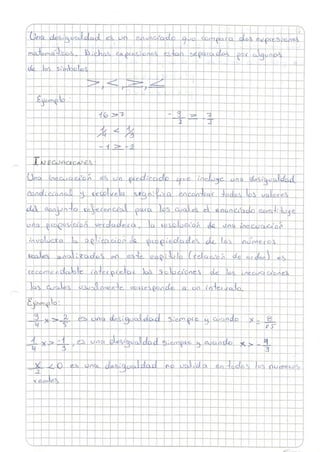 Una desigualdad es un enunciado que compara dos expresiones
matemáticas. Dichas expresiones estan separadas por algunos
de los símbolos
>, <, ≥, ≤
Ejemplo:
16 > 7
1/4 < 1/3
-1 ≥ -2
INECUACIONES:
Una inecuación es un predicado que incluye una desigualdad
condicional y resolverla significa encontrar todos los valores
del conjunto referencial para los cuales el enunciado constituye
una proposición verdadera, la resolución de una inecuación
involucra la aplicación de propiedades de los números
reales analizadas en este capítulo (relación de orden) es
recomendable interpretar las soluciones de las inecuaciones
las cuales usualmente corresponde a un intervalo.
Ejemplo:
es una desigualdad siempre y cuando x =
, es una desigualdad siempre y cuando x > -
< 0 es una desigualdad no valida en todos los numeros
reales